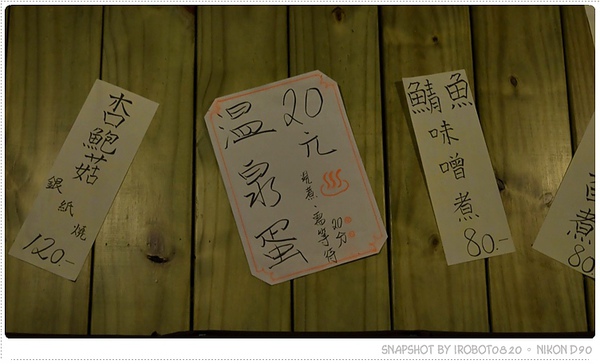 杏鮑菇
銀紙燒
120.-
溫泉蛋
20元
現煮.需等待
20分
鯖魚
味噌煮
80.-
煮
80
SNAPSHOT BY IROBOT0820 。 NIKON D90